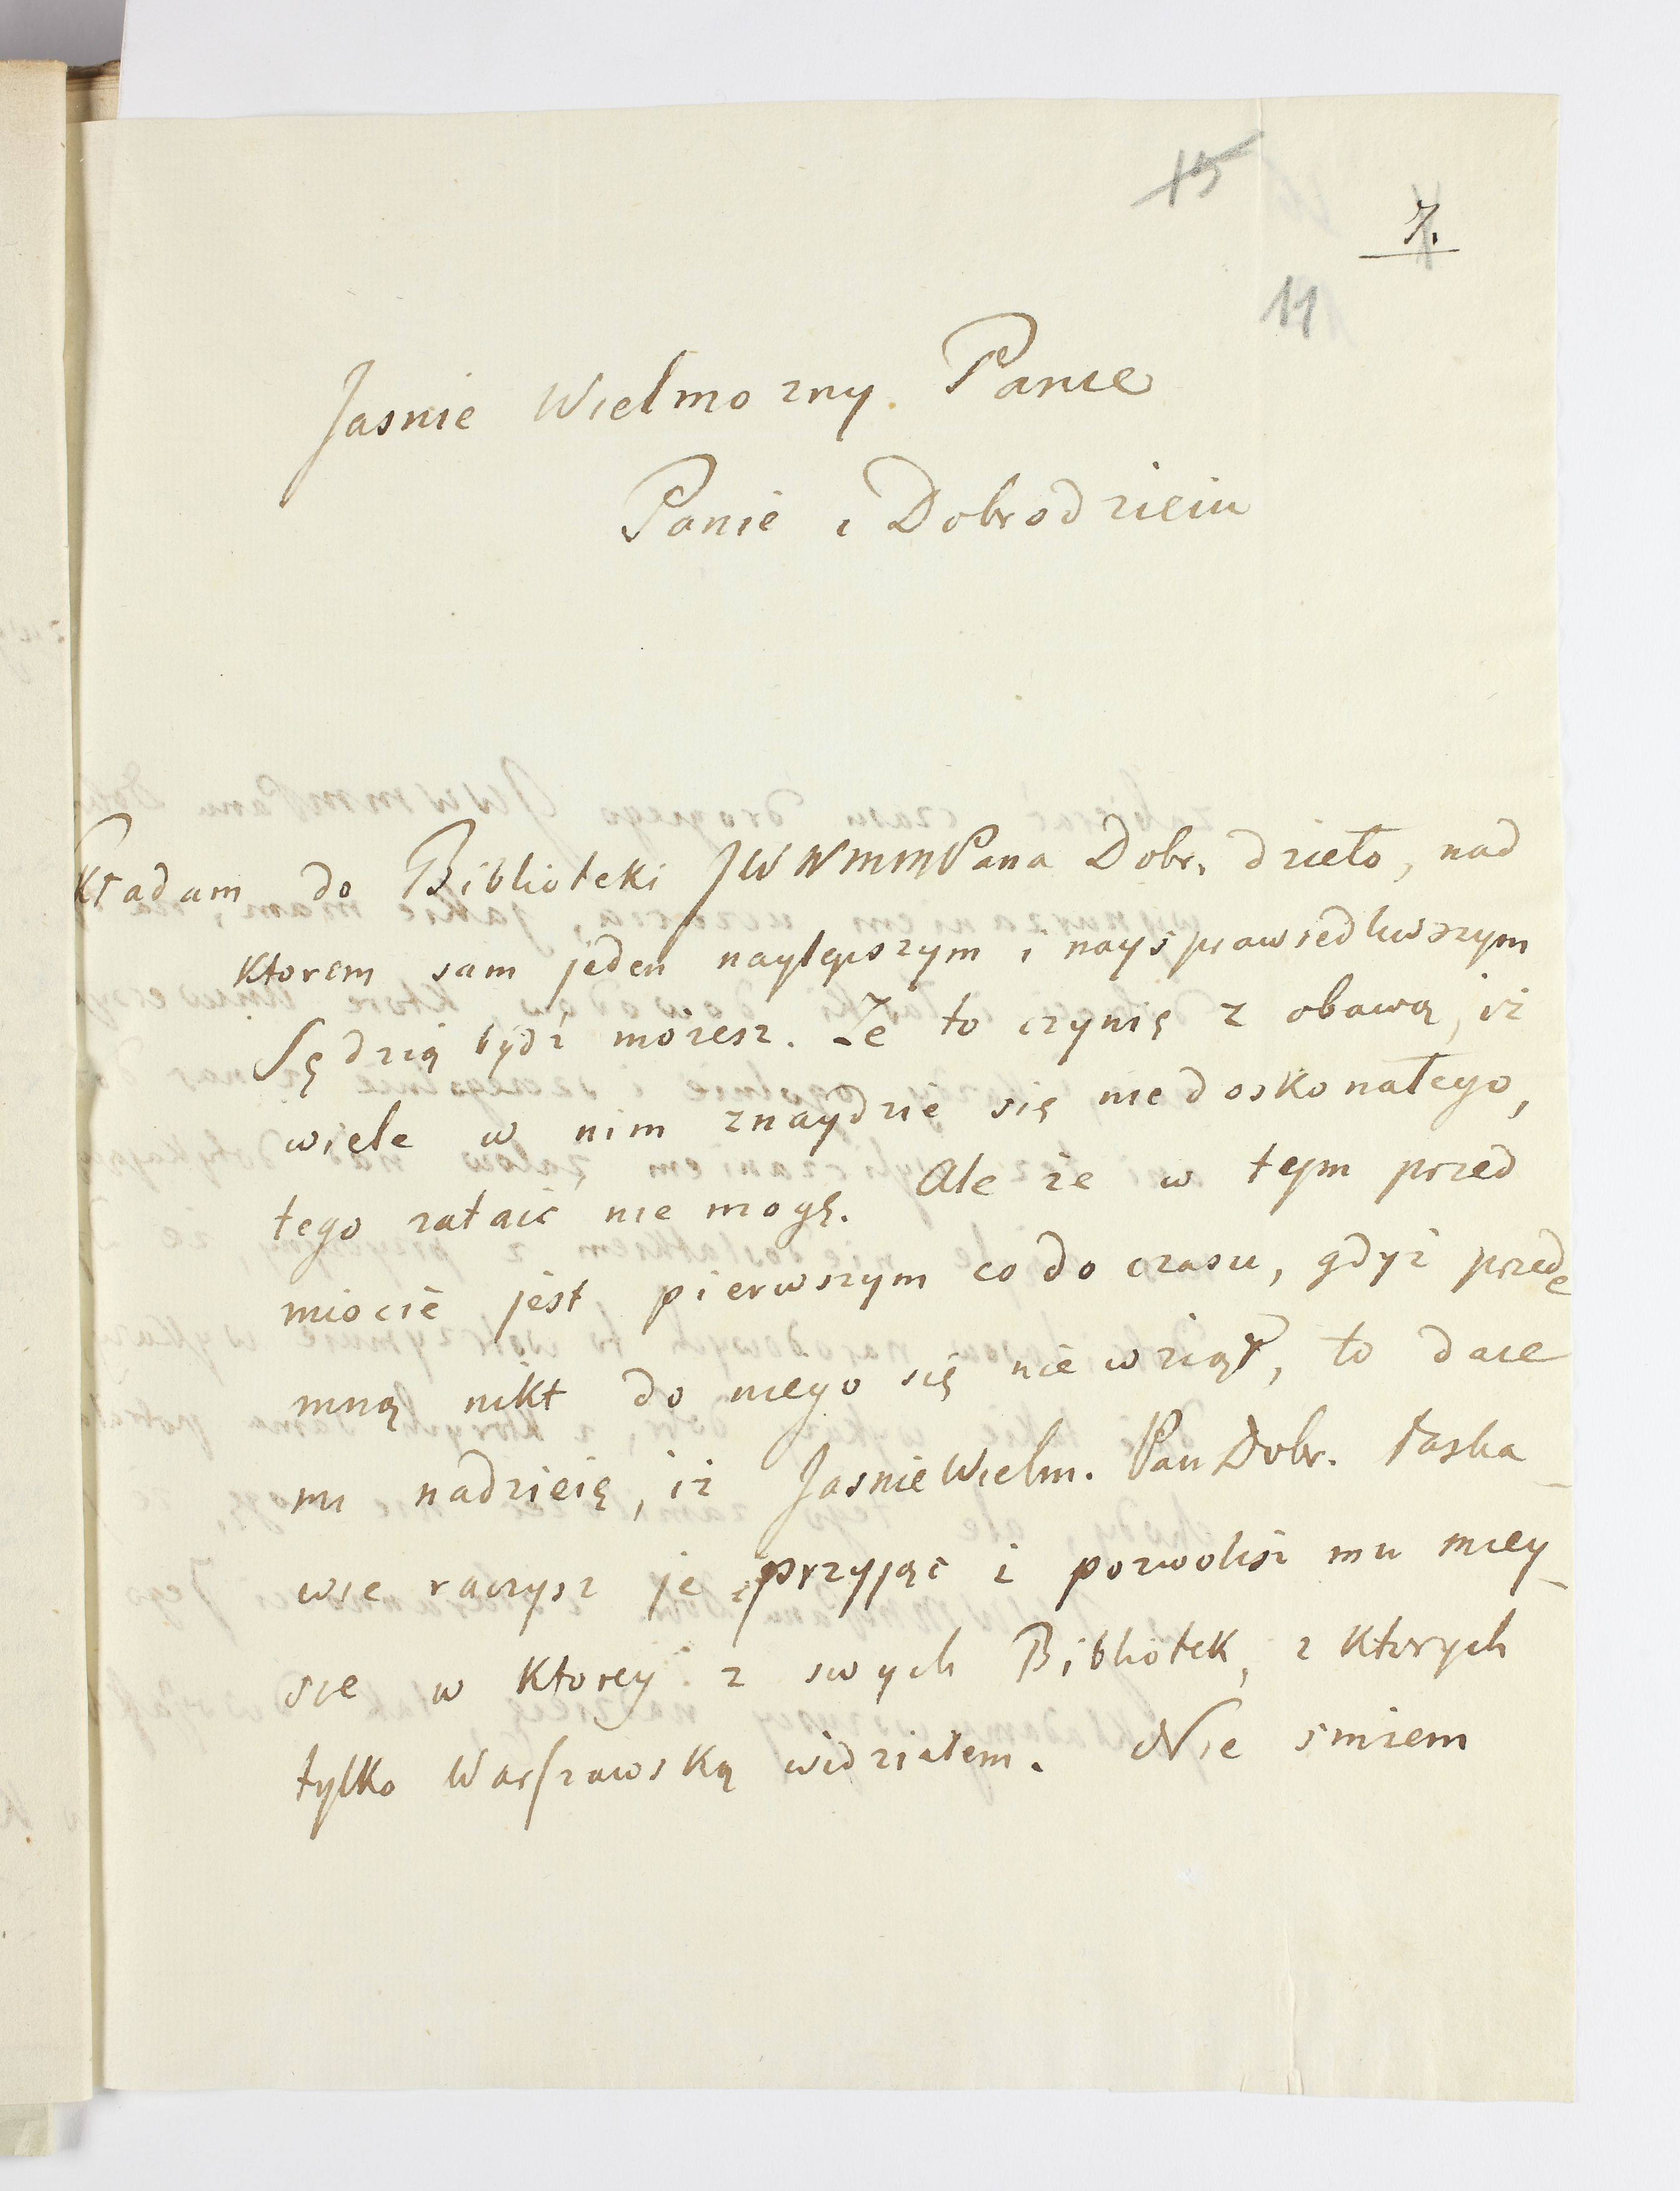 15
7.
11
Jasnie Wielmozny Panie
Panie i Dobrodzieiu
Kładam do Biblioteki JWWMMPana Dobr. dzieło, nad
ktorem sam jeden naylepszym i naysprawiedliwszym
Sędzią bydź możesz. Że to czynię z obawą, iż
wiele w nim znaydzie się niedoskonałego,
tego zataić nie mogę. Ale że w tym przed
miocie jest pierwszym co do czasu, gdyż przede
mną nikt do niego się nie wziął, to daie
mi nadzieię, iż Jasnie Wielm. Pan Dobr. łaska-
wie raczysz je przyjąć i pozwolisz mu miey-
sce w ktorey z swych Bibliotek, z ktorych
tylko Warszawską widziałem. Nie smiem